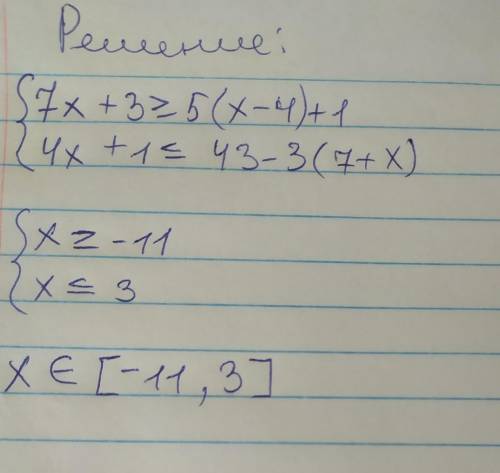 Решение:
{7x + 3 ≥ 5(x-4)+1
{4x + 1 ≤ 43-3(7+x)
{x ≥ -11
{x ≤ 3
x ∈ [-11, 3]